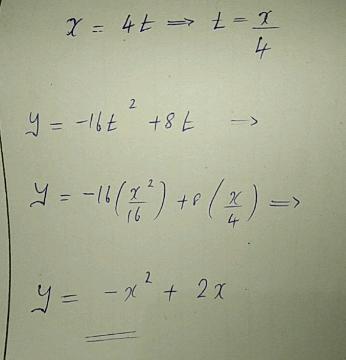 x = 4t ⇒ t = x/4
y = -16t² + 8t →
y = -16(x²/16) + 8(x/4) ⇒
y = -x² + 2x